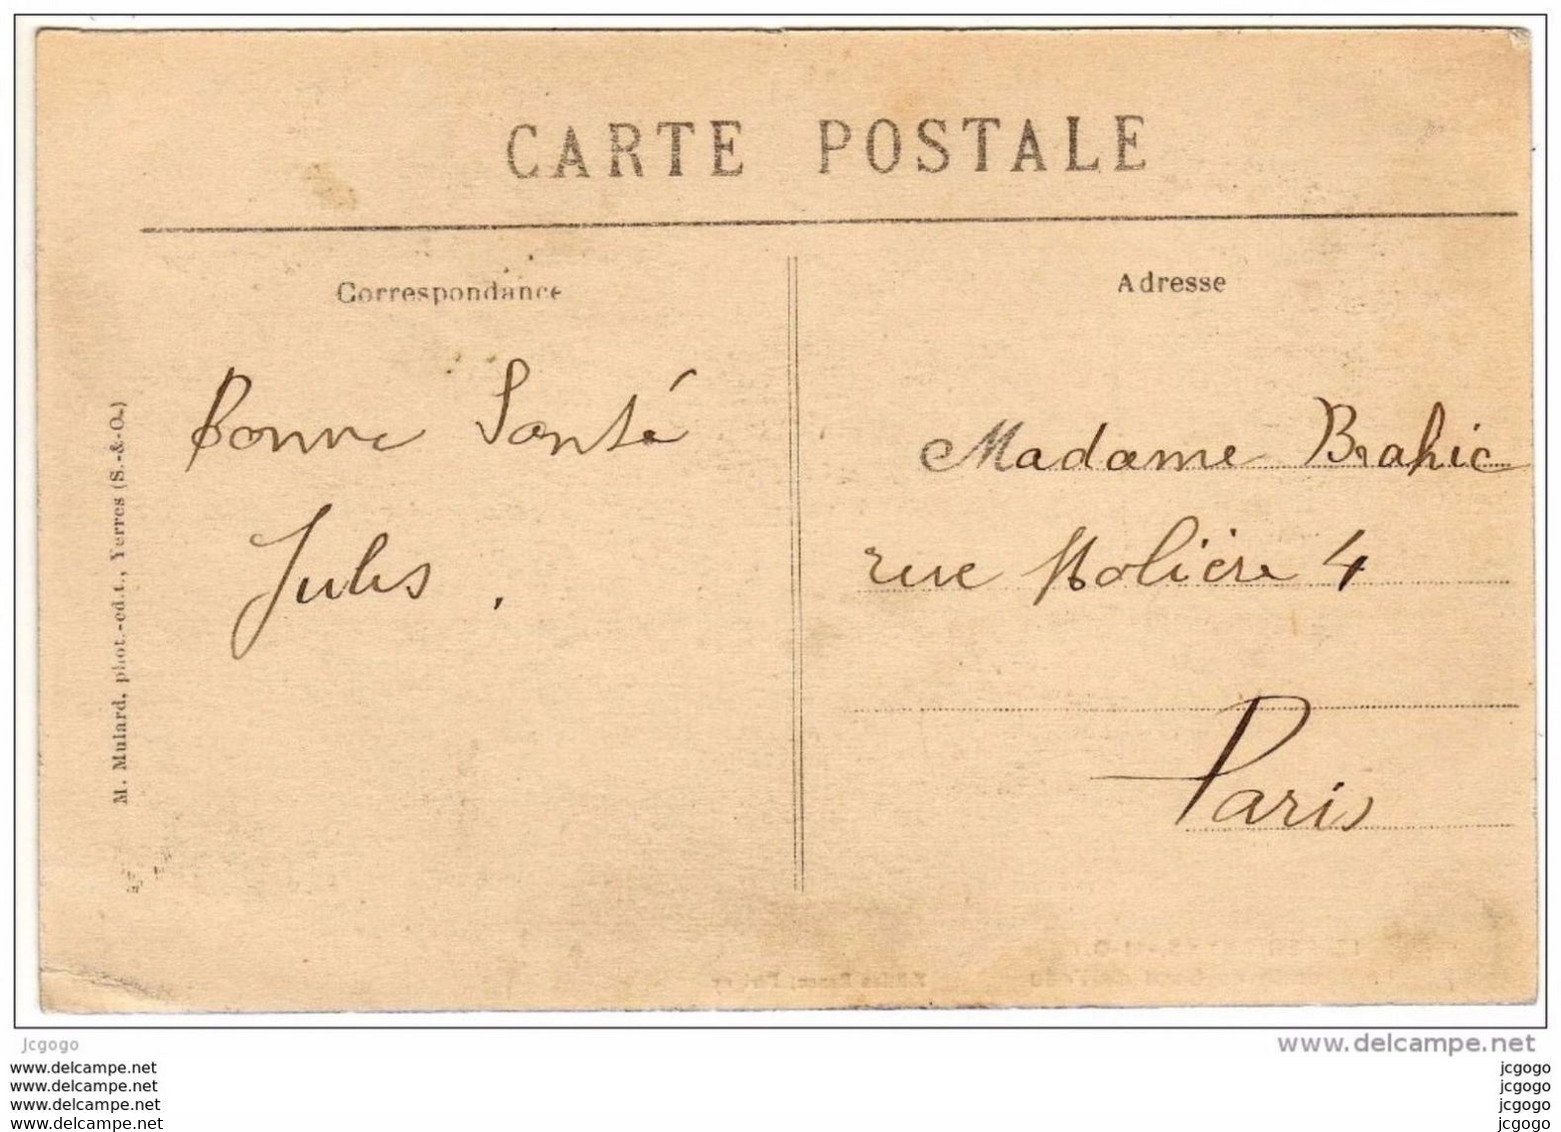 CARTE POSTALE
Correspondance
Bonne Santé
Jules.
Adresse
Madame Brahic
rue Molière 4
Paris
M. Mulard, phot.-ed.t., Yerres (S.-&-O.)
jcgogo
www.delcampe.net
www.delcampe.net
www.delcampe.net
www.delcampe.net
www.delcampe.net
jcgogo
jcgogo
jcgogo
jcgogo